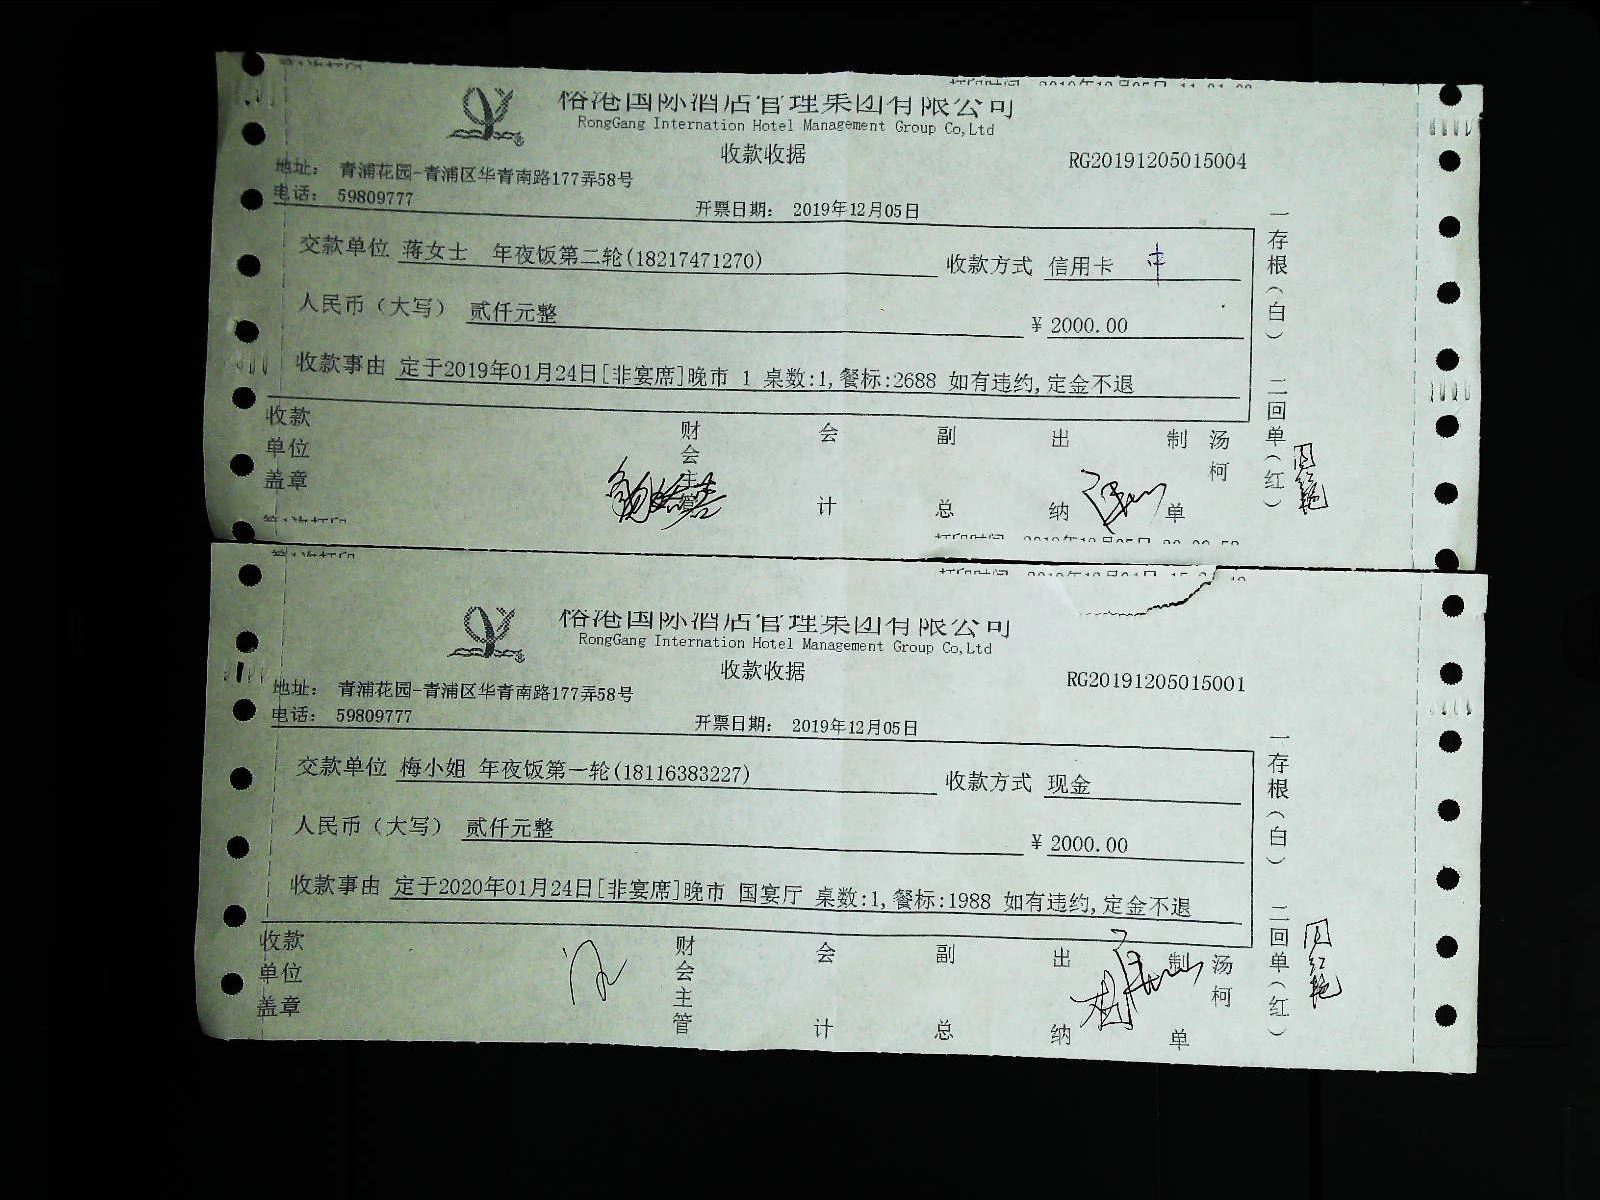 榕港国际酒店管理集团有限公司
RongGang Internation Hotel Management Group Co,Ltd
收款收据
RG20191205015004
地址： 青浦花园-青浦区华青南路177弄58号
电话： 59809777
开票日期： 2019年12月05日
交款单位 蒋女士 年夜饭第二轮(18217471270) 收款方式 信用卡
人民币（大写） 贰仟元整 ￥2000.00
收款事由 定于2019年01月24日[非宴席]晚市 1 桌数:1,餐标:2688 如有违约,定金不退
一存根（白） 二回单（红）
收款单位盖章 财会主管 会计 副总 出纳 制单 汤柯
第1次打印
第1次打印
榕港国际酒店管理集团有限公司
RongGang Internation Hotel Management Group Co,Ltd
收款收据
RG20191205015001
地址： 青浦花园-青浦区华青南路177弄58号
电话： 59809777
开票日期： 2019年12月05日
交款单位 梅小姐 年夜饭第一轮(18116383227) 收款方式 现金
人民币（大写） 贰仟元整 ￥2000.00
收款事由 定于2020年01月24日[非宴席]晚市 国宴厅 桌数:1,餐标:1988 如有违约,定金不退
一存根（白） 二回单（红）
收款单位盖章 财会主管 会计 副总 出纳 制单 汤柯